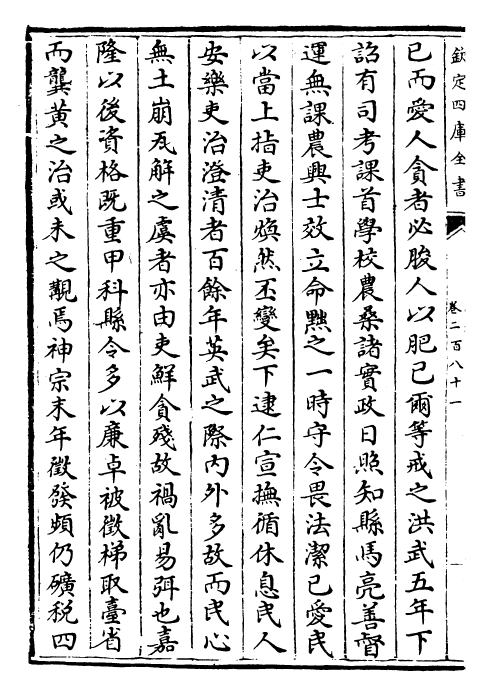 欽定四庫全書
卷二百八十一
已而愛人貪者必朘人以肥已爾等戒之洪武五年下
詔有司考課首學校農桑諸實政日照知縣馬亮善督
運無課農興士效立命黜之一時守令畏法潔已愛民
以當上指吏治煥然丕變矣下逮仁宣撫循休息民人
安樂吏治澄清者百餘年英武之際內外多故而民心
無土崩瓦解之虞者亦由吏鮮貪殘故禍亂易弭也嘉
隆以後資格既重甲科縣令多以廉卓被徵梯取臺省
而龔黃之治或未之覯焉神宗末年徵發頻仍礦稅四